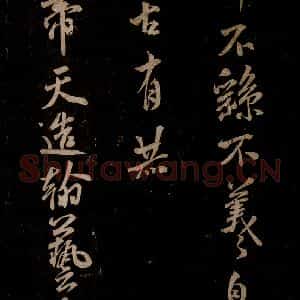 不繇不羲自
古有共
帝天造翰藝
Shufawang.CN